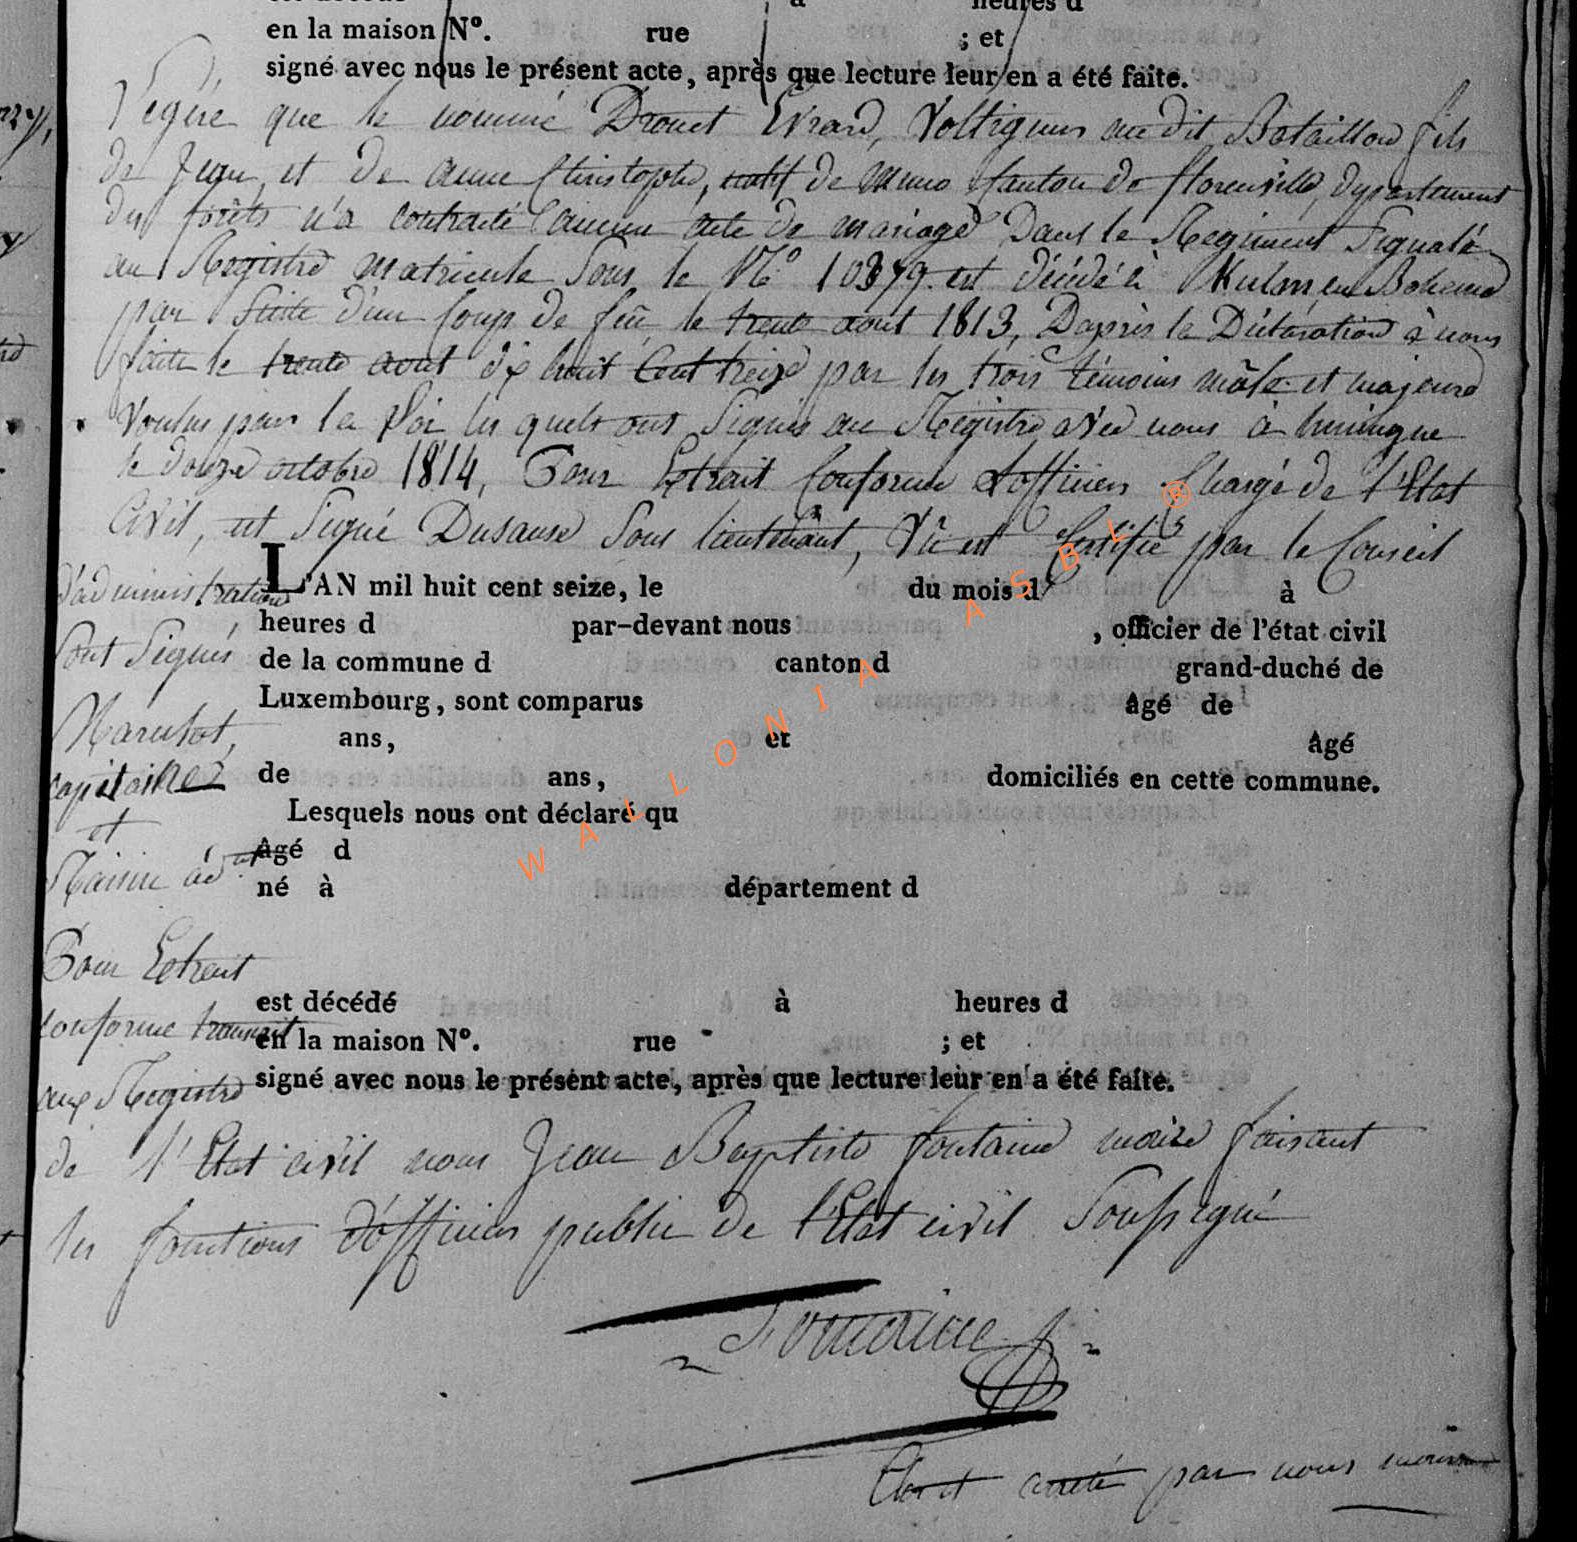 heures d
en la maison N°. rue ; et
signé avec nous le présent acte, après que lecture leur en a été faite.
Légére que le nommé Drouet Evrard, Voltigeur au dit Bataillon fils
de Jean, et de anne Christophe, natif de Muno Canton de florenville, Département
des forêts n'a contracté aucun acte de mariage Dans le Regiment Signalé
au Registre matricule Sous le N° 10379 est décédé à Kulm en Boheme
par Suite d'un Coup de feu le trente aout 1813, Daprès la Déclaration à nous
faite le trente aout dix huit Cent treize par les trois témoins mâle et majeurs
Voulus par la Loi les quels ont Signés au Registre avec nous à huningue
le douze octobre 1814, Pour Extrait Conforme L'officier Chargé de l'Etat
Civil, est Signé Dusause Sous lieutenant, Vû et Certifié par le Conseil
d'administration
L'AN mil huit cent seize, le du mois d à
heures d par-devant nous , officier de l'état civil
Sont Signés
de la commune d canton d grand-duché de
Luxembourg, sont comparus âgé de
ans, et âgé
capitaine
de ans, domiciliés en cette commune.
et
Lesquels nous ont déclaré qu
âgé d
né à département d
Pour Extrait
est décédé à heures d
conforme transcrit
en la maison N°. rue ; et
aux Registre
signé avec nous le présent acte, après que lecture leur en a été faite.
de l'Etat civil nous Jean Baptiste fontaine maire faisant
les fonctions d'officier public de l'Etat civil Soussigné
Fontaine
Clos et arrêté par nous maire
WALLONIA ASBL ®